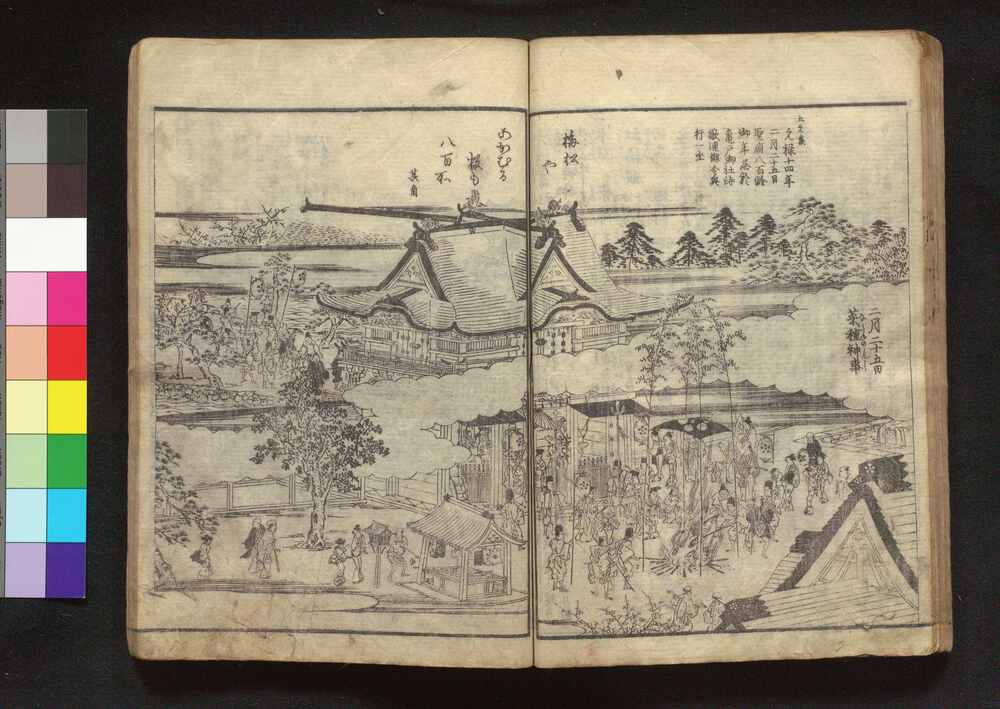 五元集
元禄十四年
二月二十五日
聖廟八百齢
御年忌於
亀戸御社詠
歌連俳令興
行一坐
梅松や
あがむる
数も
八百所
其角
二月二十五日
菜種神事